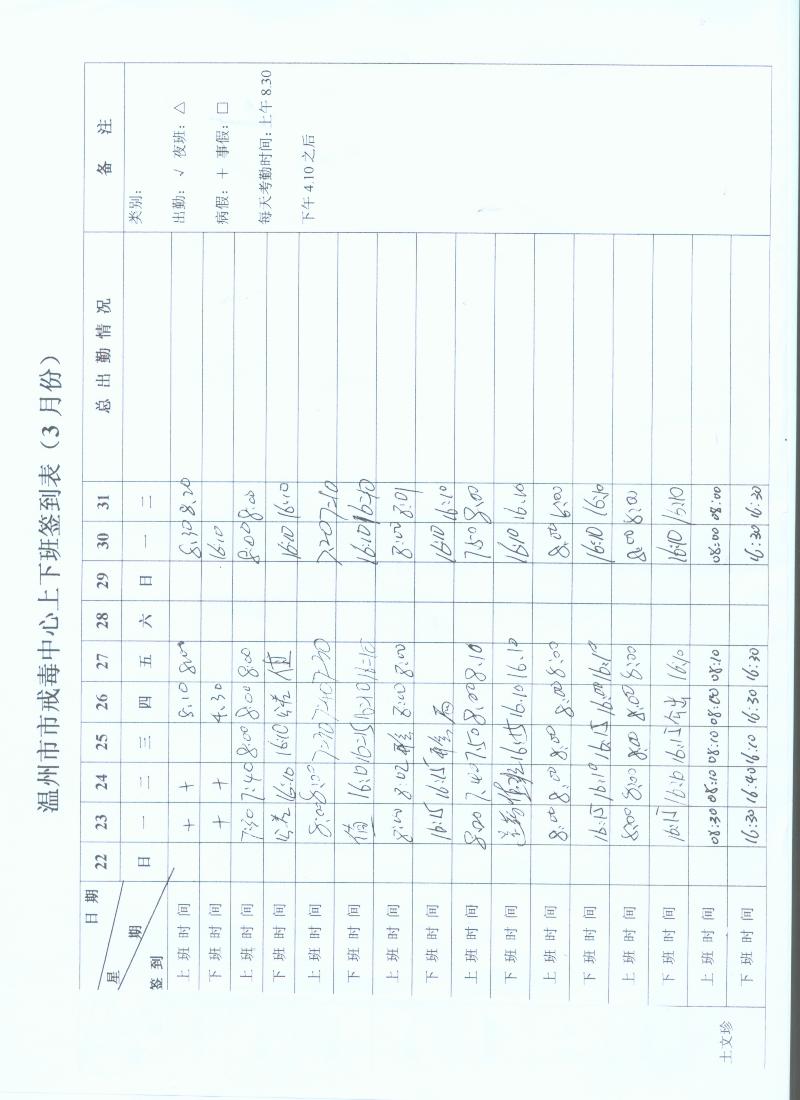 温州市市戒毒中心上下班签到表（3月份）
日期 22 23 24 25 26 27 28 29 30 31 总出勤情况 备注
星期 日 一 二 三 四 五 六 日 一 二
签到
类别：
出勤：√ 夜班：△
病假：＋ 事假：□
每天考勤时间：上午8.30
下午4.10之后
上班时间 + + 8:10 8:00 8:30 8:20
下班时间 + + 4.30 16:10
上班时间 7:50 7:40 8:00 8:00 8:00 8:00 8:00
下班时间 16:10 16:10 值 16:10 16:10
上班时间 8:00 8:00 7:20 7:10
下班时间 值 16:10 16:10 16:10
上班时间 8:00 8:02 8:00 8:00 8:00 8:01
下班时间 16:15 16:15 16:10 16:10
上班时间 8:00 7:40 7:50 8:00 8:10 7:50 8:00
下班时间 16:15 16:10 16:10 16:10 16.10
上班时间 8:00 8:00 8:00 8:00 8:00 8:00
下班时间 16:15 16:10 16:15 16:00 16:10 16:10
上班时间 8:00 8:00 8:00 8:00 8:00 8:00 8:00
下班时间 16:15 16:10 16:15 16:10 16:10
上班时间 08:30 08:10 08:10 08:00 08:10 08:00 08:00
下班时间 16:30 16:40 16:10 16:30 16:30 16:30 16:30
王文珍